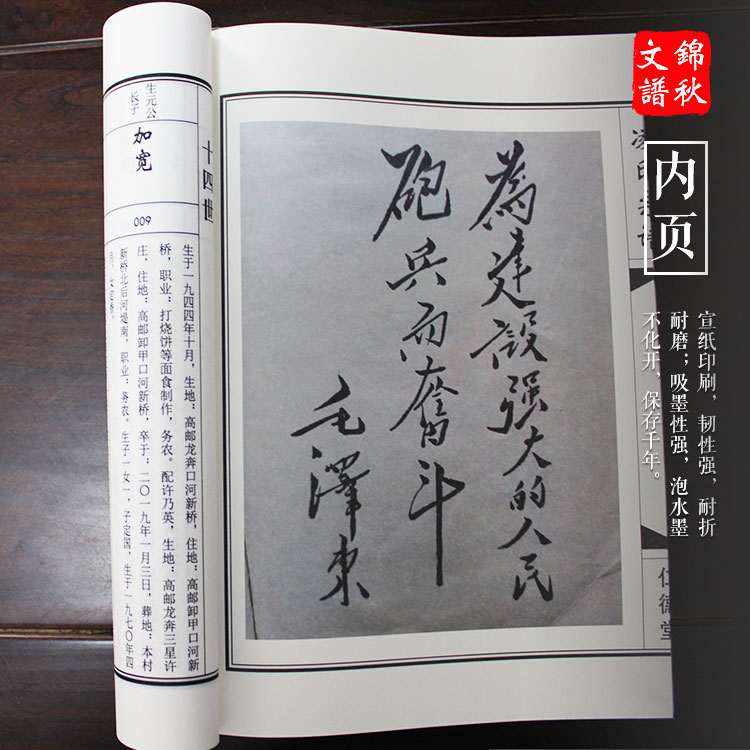 錦秋
文譜
内页
宣纸印刷，韧性强，耐折
耐磨；吸墨性强，泡水墨
不化开，保存千年。
仁德堂
為建設强大的人民
砲兵而奮斗
毛澤東
十四世
生元公
长子
加宽
009
生于一九四四年十月，生地：高邮龙奔口河新桥，住地：高邮卸甲口河新
桥，职业：打烧饼等面食制作，务农。配许乃英，生地：高邮龙奔三星许
庄，住地：高邮卸甲口河新桥，卒于：二〇一九年一月三日，葬地：本村
新桥北后河堤南，职业：务农。生子一女一，子定国，生于一九七〇年四